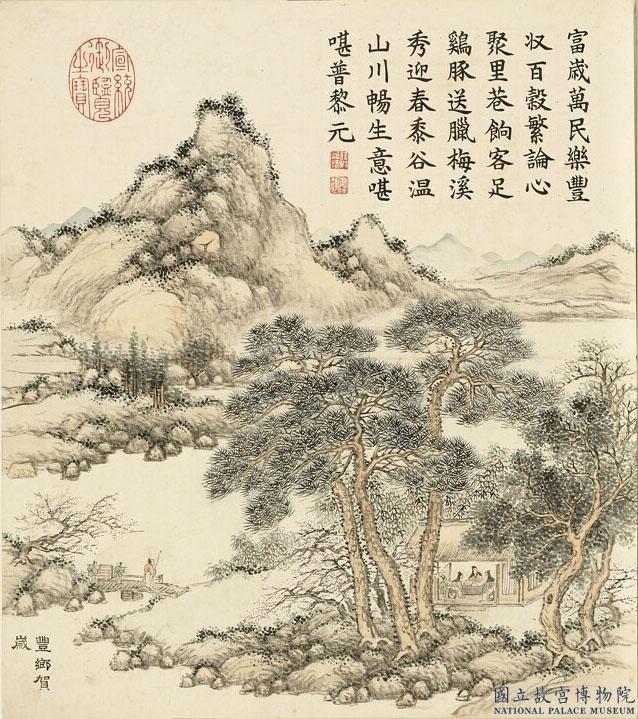 富歲萬民樂豐
収百穀繁論心
聚里巷餉客足
鷄豚送臘梅溪
秀迎春黍谷温
山川暢生意堪
堪普黎元
宣統
御覽
之寶
豐鄉賀
歲
國立故宮博物院
NATIONAL PALACE MUSEUM